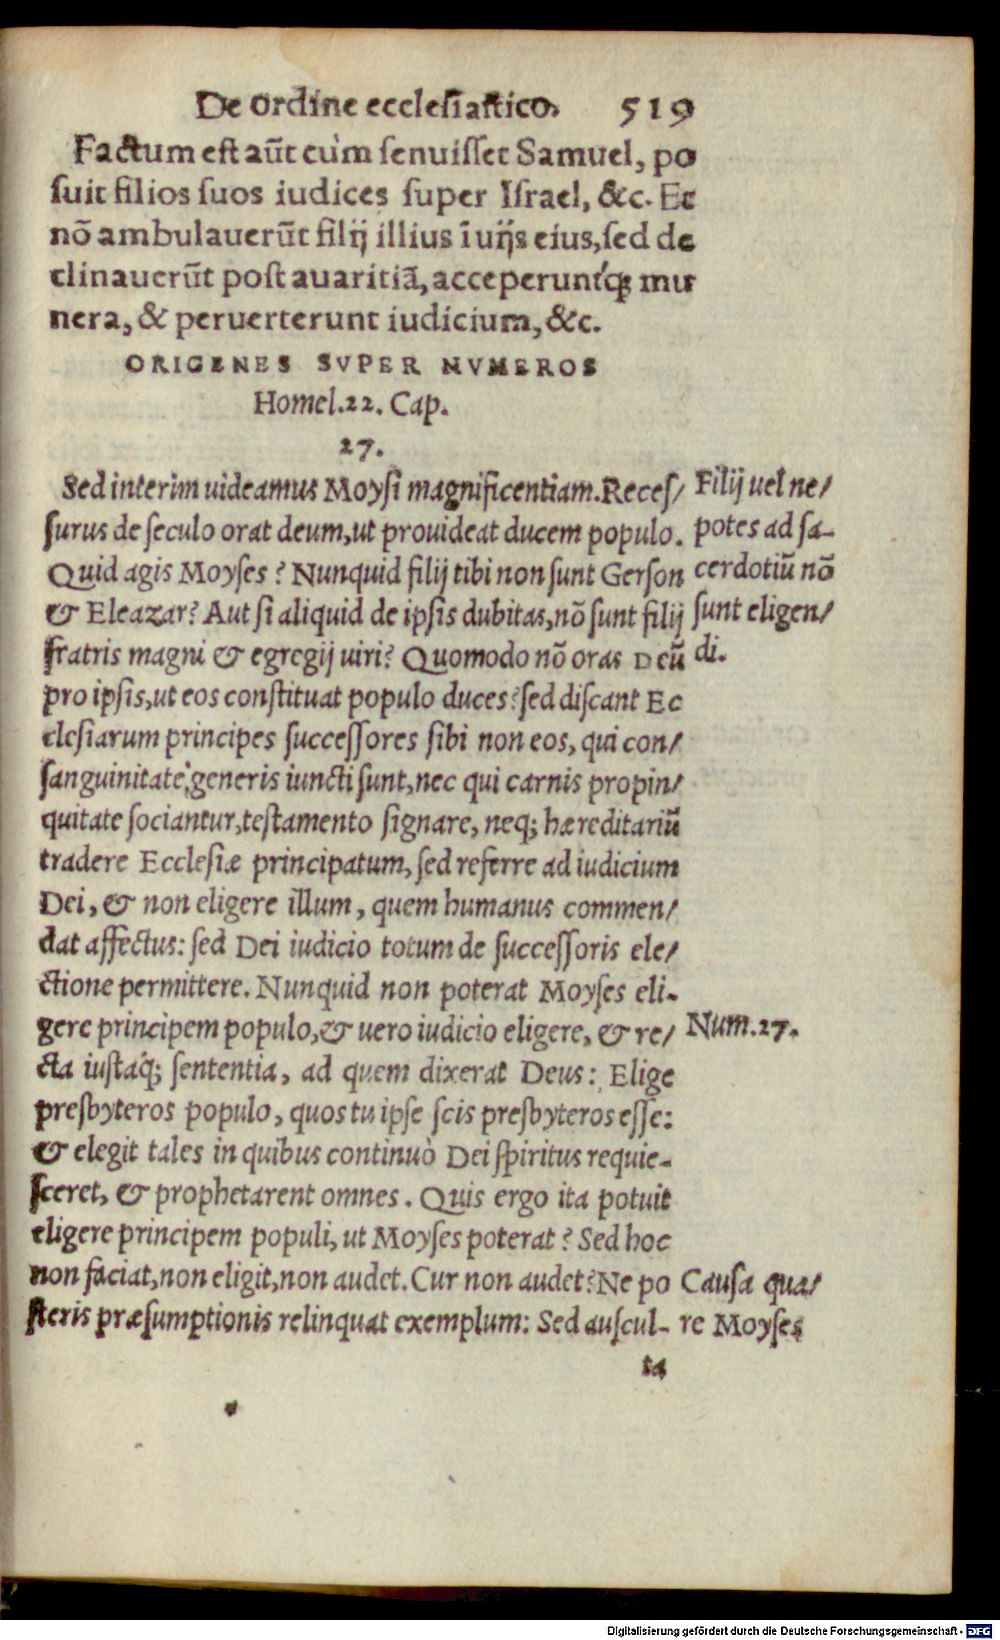 De ordine ecclesiastico. 519
Factum est aūt cùm senuisset Samuel, po
suit filios suos iudices super Israel, &c. Et
nō ambulauerūt filij illius ī uijs eius, sed de
clinauerūt post avaritiā, acceperuntq́; mu
nera, & peruerterunt iudicium, &c.
ORIGENES SVPER NVMEROS
Homel. 22. Cap.
27.
Sed interim uideamus Moysi magnificentiam. Reces/
surus de seculo orat deum, ut prouideat ducem populo.
Quid agis Moyses? Nunquid filij tibi non sunt Gerson
& Eleazar? Aut si aliquid de ipsis dubitas, nō sunt filij
fratris magni & egregij uiri? Quomodo nō oras Deū
pro ipsis, ut eos constituat populo duces? sed discant Ec
clesiarum principes successores sibi non eos, qui con/
sanguinitate generis iuncti sunt, nec qui carnis propin/
quitate sociantur, testamento signare, neq; hæreditariū
tradere Ecclesiæ principatum, sed referre ad iudicium
Dei, & non eligere illum, quem humanus commen/
dat affectus: sed Dei iudicio totum de successoris ele/
ctione permittere. Nunquid non poterat Moyses eli-
gere principem populo, & uero iudicio eligere, & re/
cta iustaq́; sententia, ad quem dixerat Deus: Elige
presbyteros populo, quos tu ipse scis presbyteros esse:
& elegit tales in quibus continuò Dei spiritus requie-
sceret, & prophetarent omnes. Quis ergo ita potuit
eligere principem populi, ut Moyses poterat? Sed hoc
non faciat, non eligit, non audet. Cur non audet? Ne po
steris præsumptionis relinquat exemplum: Sed auscul-
ta
Filij uel ne/
potes ad sa-
cerdotiū nō
sunt eligen/
di.
Num. 27.
Causa qua/
re Moyses
Digitalisierung gefördert durch die Deutsche Forschungsgemeinschaft - DFG